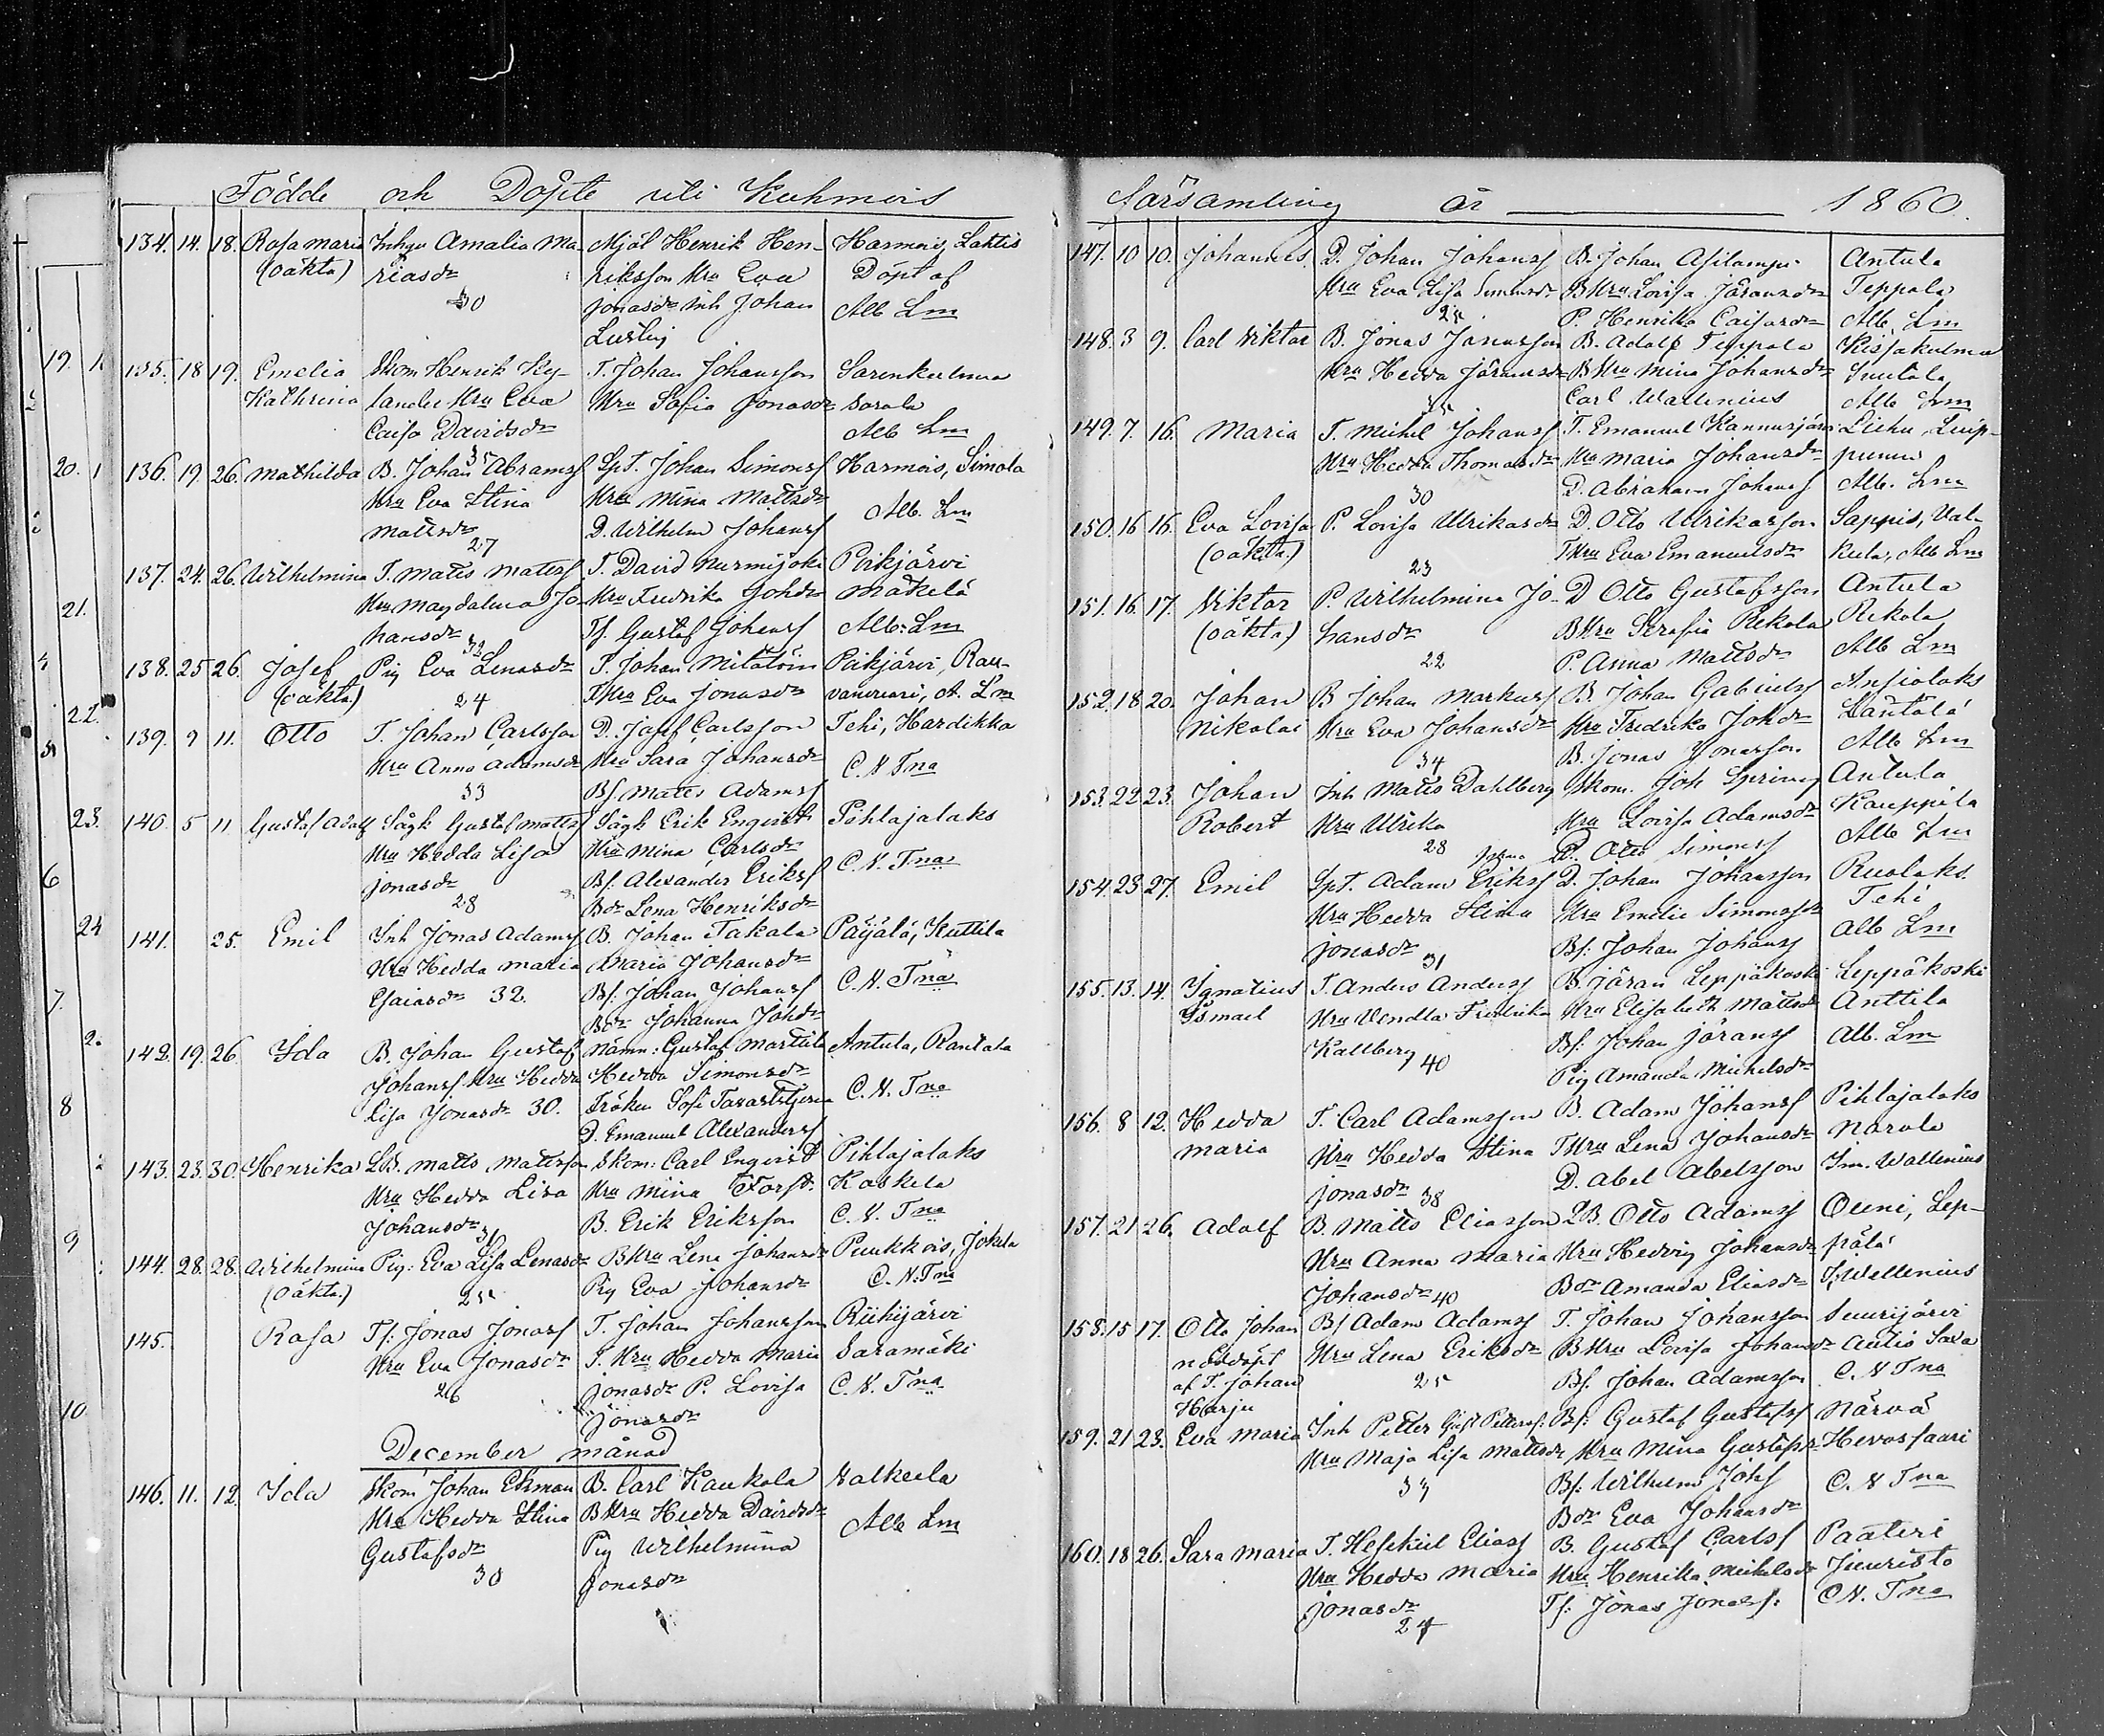 Födde och Döpte uti Kuhmois
134. 14. 18. Rosa Maria Inhys Amalia Ma- Mjöl Henrik Hen- Harmois, Lahtis
(oäkta) riasdr riksson Hru Eva Döpt af
30 Jonasdr Inh Johan Alb Lm
Lustig
135. 18 19. Emelia Skom Henrik Ky- T. Johan Johansson Sarenkulma
Kathrina lander Hru Eva Hru Sofia Jonasdr Sarala
Caisa Davidsdr Alb Lm
35
136. 19. 26. Mathilda B. Johan Abramss SpT. Johan Simonss Harmois, Simola
Hru Eva Stina Hru Mina Mattsdr Alb. Lm
Mattsdr D. Wilhelm Johanss
27
137. 24. 26. Wilhelmina T. Matts Mattss T. David Nurmijoki Pirkjärvi
Hru Magdalena Jo- Hru Fredrika Johdr Mäkelä
hansdr Ts. Gustaf Johanss Alb: Lm
32
138. 25 26. Josef Pig Eva Lenasdr T. Johan Mitätöin Päikjärvi, Rau-
(oäkta) 24 THru Eva Jonasdr vanvuori, A. Lm
139. 9 11. Otto T. Johan Carlsson D. Josef Carlsson Tehi, Hardikka
Hru Anna Adamsdr Hru Sara Johansdr C. N. Tna
33 Bs. Matts Adamss
140. 5 11 Gustaf Adolf Sågk Gustaf Mattss Sågk Erik Engvist Pihlajalaks
Hru Hedda Lisa Hru Mina Carlsdr C. N. Tna
Jonasdr Bs. Alexander Erikss
28 Bdr Lena Henriksdr
141. 25. Emil Inh Jonas Adamss B. Johan Takala Päijälä, Kuttila
Hru Hedda Maria Maria Johansdr C. N. Tna
Esaiasdr 32. Bs. Johan Johanss
Bdr Johanna Johdr
142. 19. 26. Ida B. Johan Gustaf Nämn: Gustaf Marttila Antula, Rantala
Johanss Hru Hedda Hedda Simonsdr C. N. Tna
Lisa Jonasdr 30. Fröken Sofi Tavaststjerna
D. Emanuel Alexanderss
143. 23. 30. Henrika LB. Matts Mattsson Skom: Carl Engvist Pihlajalaks
Hru Hedda Lisa Hru Mina Forss. Koskela
Johansdr 31 B. Erik Eriksson C. N. Tna
144. 28. 28. Wilhelmina Pig: Eva Lisa Lenasdr BHru Lena Johansdr Puukkois, Jokela
(oäkta.) 25 Pig Eva Johansdr C. N. Tna
145. Rosa Ts. Jonas Jonass T. Johan Johansson Riihijärvi
Hru Eva Jonasdr T. Hru Hedda Maria Saramäki
26 Jonasdr P. Lovisa C. N. Tna
Jonasdr
December månad
146. 11. 12. Ida Skom Johan Ekman B. Carl Kaukola Walkeela
Hru Hedda Stina BHru Hedda Davidsdr Alb Lm
Gustafsdr Pig Wilhelmina
30 Jonasdr
församling år 1860.
147. 10 10. Johannes. D. Johan Johanss B. Johan Asilampi Antula
Hru Eva Lisa Simonsdr BHru Lovisa Göransdr Teppala
25 P. Henrika Caisasdr Alb. Lm
148. 3 9. Carl Viktor B. Jonas Jonasson B. Adolf Teppala Kissakulma
Hru Hedda Göransdr BHru Mina Johansdr Suutala
35 Carl Wallenius Alb Lm
149. 7. 16. Maria T. Michel Johanss T. Emanuel Kannusjärvi Liehu, Leip-
Hru Hedda Thomasdr Hru Maria Johansdr
30 D. Abraham Johanss Alb. Lm
150. 16 16. Eva Lovisa P. Lovisa Ulrikasdr D. Otto Ulrikasson Sappis, Val-
(oäkta.) 23 THru Eva Emanuelsdr kula, Alb Lm
151. 16. 17. Viktor P. Wilhelmina Jo- D Otto Gustafsson Antula
(oäkta) hansdr BHru Serafia Rekola Rekola
22 P. Anna Mattsdr Alb Lm
152. 18. 20. Johan B Johan Markuss B. Johan Gabrielss Ansiolaks
Nikolai Hru Eva Johansdr Hru Fredrika Johdr
34 B. Jonas Jonasson Alb Lm
153. 22 23. Johan Inh Matts Dahlberg Skom. Joh Spring Antula
Robert Hru Ulrika Hru Lovisa Adamsdr Kauppila
28 D. Otto Simonss Alb Lm
154. 23 27. Emil SpT. Adam Erikss D. Johan Johansson Ruolaks.
Hru Hedda Stina Hru Emelie Simonsdr Tehi
Jonasdr 31 Bs: Johan Johanss Alb Lm
155. 13. 14. Ignatius T. Anders Anderss B. Göran Leppäkoski Leppäkoski
Ismael Hru Vendla Fredrika Hru Elisabeth Mattsdr Anttila
Kallberg 40 Bs: Johan Göranss Alb. Lm
Pig Amanda Michelsdr
156. 8 12. Hedda T. Carl Adamsson B. Adam Johanss Pihlajalaks
Maria Hru Hedda Stina THru Lena Johansdr Narola
Jonasdr 38 D. Abel Abelsson Im. Wallenius
157. 21 26. Adolf B. Matts Eliasson LB. Otto Adamss Ouni, Lep-
Hru Anna Maria Hru Hedvig Johansdr pälä
Johansdr 40 Bdr Amanda Eliasdr I, Wallenius
158. 15 17. Otto Johan Bs Adam Adamss T. Johan Johansson Suurijärvi
nöddöpt Hru Lena Eriksdr BHru Lovisa Johansdr Autio Saxa
af T. Johan 25 Bs. Johan Adamsson C. N Tna
Harju
159. 21 23. Eva Maria Inh Petter Gust Petterss. Bs: Gustaf Gustafss Närvä
Hru Maja Lisa Mattsdr Hru Mina Gustafsdr Hevossaari
Bs: Wilhelm Johs C. N Tna
Bdr Eva Johansdr
160. 18 26. Sara Maria T. Heskiel Eliass B. Gustaf Carlss Paateri
Hru Hedda Maria Hru Henrika Mickelsdr Juuristo
Jonasdr Ts: Jonas Jonass. C N. Tna
24
19.
20.
21.
22.
23.
6
24
7.
8
9
10.